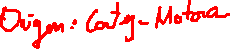 Origen: Corteza Motora